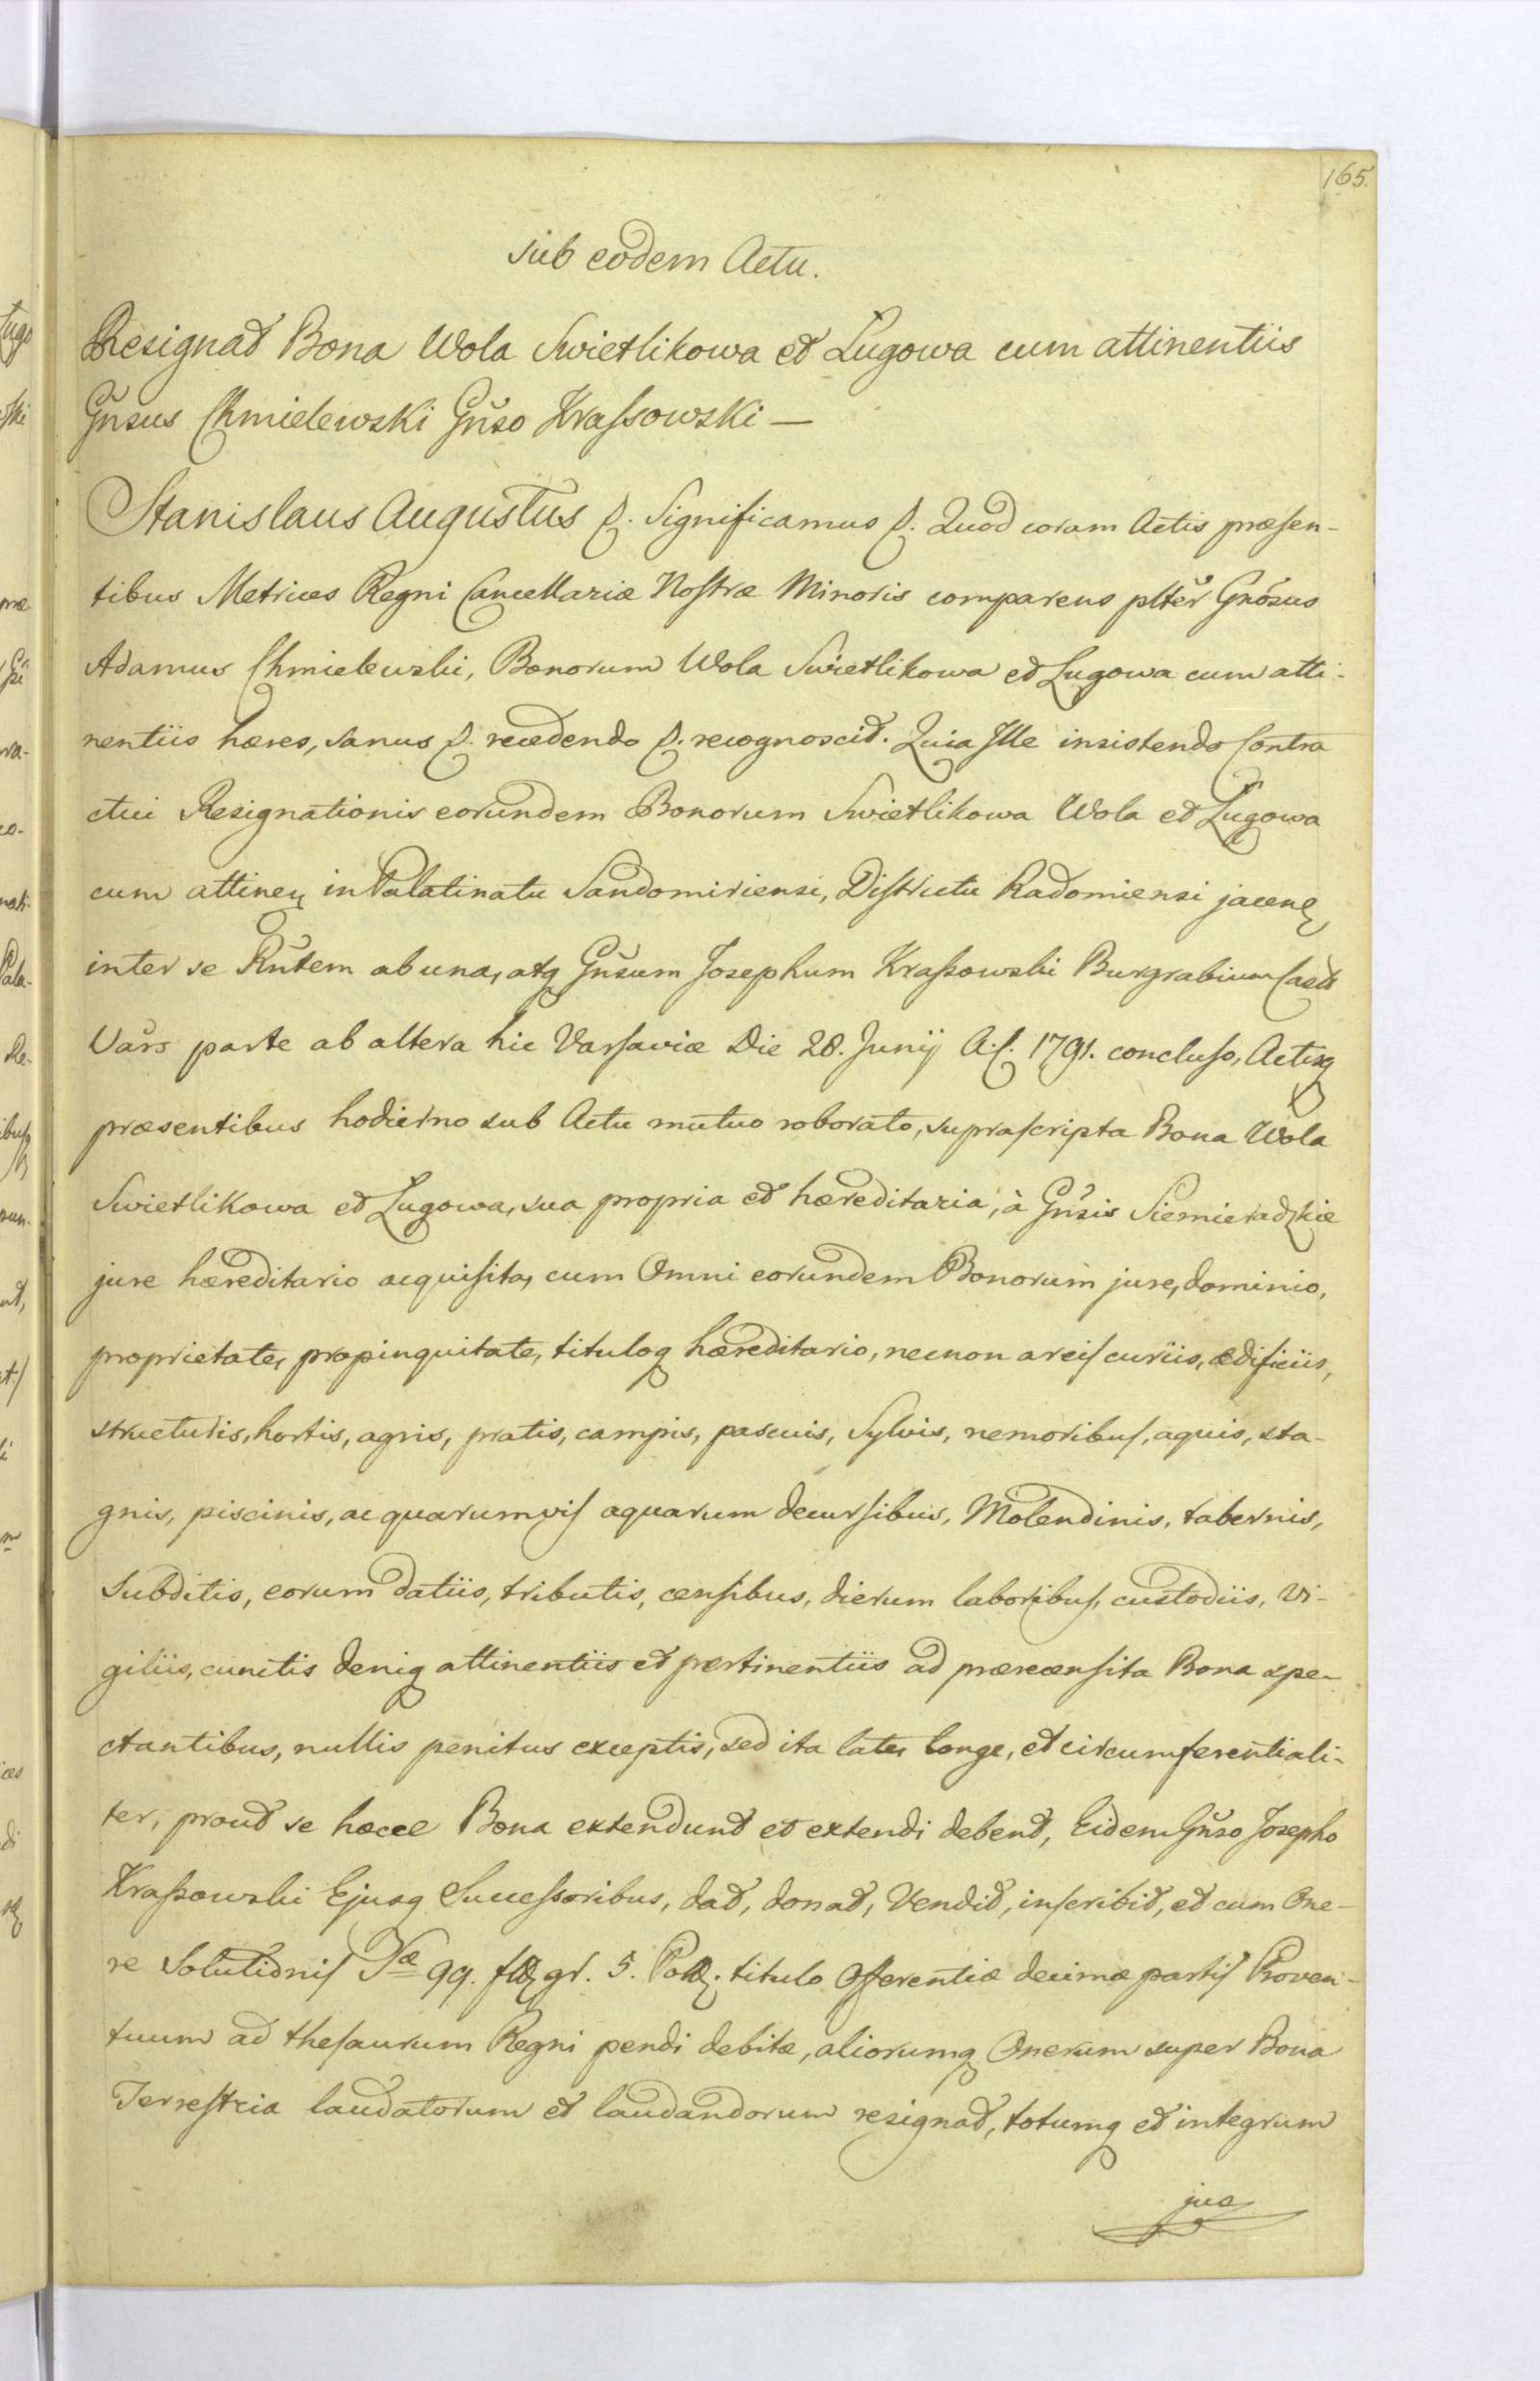 165.
sub eodem Actu.
Resignat Bona Wola Swietlikowa et Ługowa cum attinentiis
Gñsus Chmielewski Gñso Kraſsowski —
Stanislaus Augustus &. Significamus &. Quod coram Actis præsen-
tibus Metrices Regni Cancellariæ Noſtræ Minoris comparens plter Gnosus
Adamus Chmielewski, Bonorum Wola Swietlikowa et Ługowa cum atti-
nentiis hæres, sanus &. recedendo &. recognoscit. Quia Ille insistendo Contra
ctui Resignationis eorundem Bonorum Swietlikowa Wola et Ługowa
cum attinen in Palatinatu Sandomiriensi, Diſtrictu Radomiensi jacen,
inter se Rñtem ab una, atq Gñsum Josephum Kraſsowski Burgrabium Caſtr
Vars parte ab altera hic Varſaviæ Die 28. Junij A. C. 1791. concluſo, Actisq
præsentibus hodierno sub Actu mutuo roborato, supraſcripta Bona Wola
Swietlikowa et Ługowa, sua propria et hæreditaria, à Gñsis Siemieradzkie
jure hæreditario acquiſita, cum Omni eorundem Bonorum jure, dominio,
proprietate, propinquitate, tituloq hæreditario, necnon areiſ curiis, ædificiis,
structuris, hortis, agris, pratis, campis, pascuis, Sylvis, nemoribuſ, aquis, sta-
gnis, piscinis, ac quarumviſ aquarum decurſibus, Molendinis, tabernis,
Subditis, eorum datiis, tributis, cenſibus, dierum laboribuſ, custodiis, vi-
giliis, cunctis deniq attinentiis et pertinentiis ad præcenſita Bona spe-
ctantibus, nullis penitus exceptis, sed ita late, longe, et circumferentiali-
ter, prout se hæcce Bona extendunt et extendi debent, Eidem Gñso Josepho
Kraſsowski Ejusq Succeſsoribus, dat, donat, Vendit, inſcribit, et cum One-
re Solutioniſ Sæ 99. fl gr. 5. Pol. titulo Offerentiæ decimæ partiſ Proven-
tuum ad theſaurum Regni pendi debitæ, aliorumq Onerum super Bona
Terreſtria laudatorum et laudandorum resignat, totumq et integrum
jus